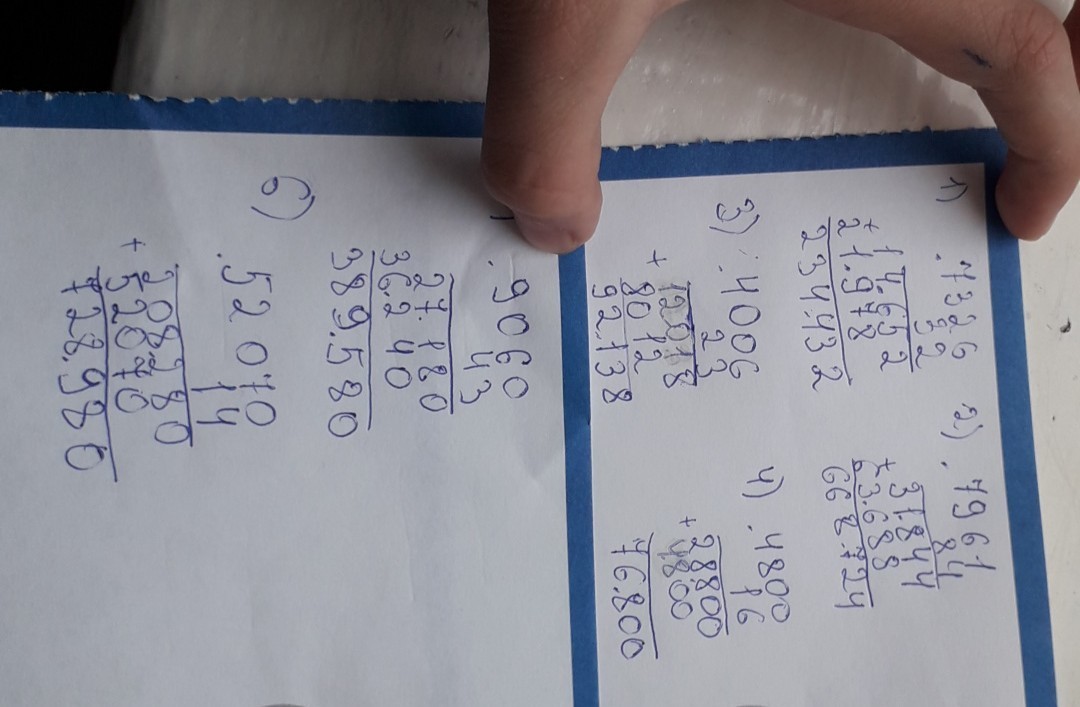 1) .7326
32
14.652
+ 21.978
234.432
2) .7961
84
31.844
+ 63.688
668.724
3) .4006
23
12018
+ 8012
92.138
4) .4800
16
28.800
+ 48.00
76.800
.9060
43
27.180
36.240
389.580
6) .52070
14
208.280
+ 52070
728.980